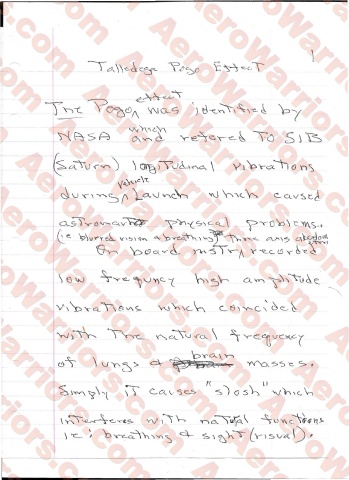 1
Talledega Pogo Effect
effect
The Pogo, was identified by
which
NASA and refered To SIB
(Saturn) longitudinal vibrations
vehicle
during, Launch which caused
physical problems.
(ie blurred vision & breathing) Three axis
On board instr, recorded
low frequncy high amplitude
vibrations which coincided
with The natural frequency
brain
of lungs & masses.
Simply iT causes "slosh" which
interferes with functions
ie: breathing & sight (visual).
AeroWarriors.com